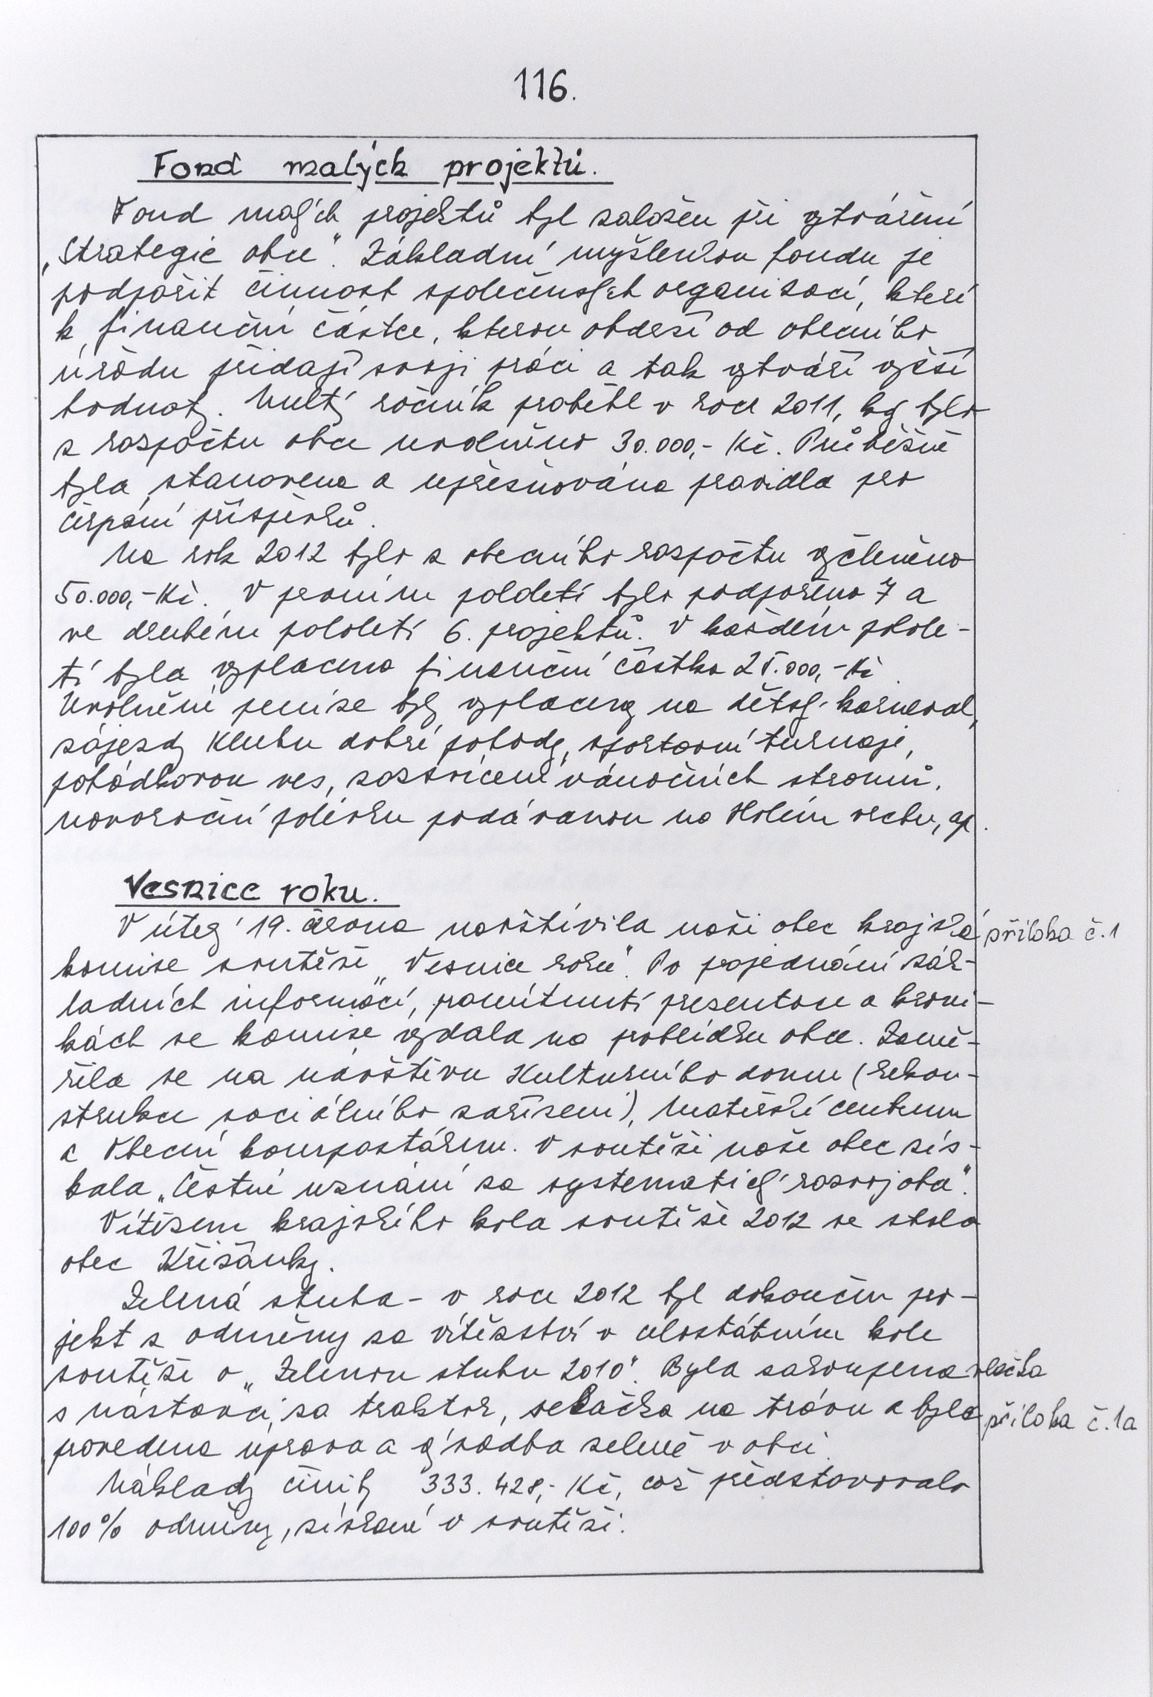 116.
Fond malých projektů.
Fond malých projektů byl založen při vytváření
„Strategie obce". Základní myšlenkou fondu je
podpořit činnost společenských organizací, které
k finanční částce, kterou obdrží od obecního
úřadu přidají svoji práci a tak vytváří vyšší
hodnoty. Nultý ročník proběhl v roce 2011, kdy bylo
z rozpočtu obce uvolněno 30.000,- Kč. Průběžně
byla stanovena a upřesňována pravidla pro
čerpání příspěvků.
Na rok 2012 bylo z obecního rozpočtu vyčleněno
50.000,- Kč. V prvním pololetí bylo podpořeno 7 a
ve druhém pololetí 6. projektů. V každém polole-
tí byla vyplacena finanční částka 25.000,- Kč
Uvolněné peníze byly vyplaceny na dětský karneval,
zájezdy Klubu dobré pohody, sportovní turnaje,
pohádkovou ves, rozsvícení vánočních stromů,
novoroční polévku podávanou na Holém vrchu, ap.
Vesnice roku.
V úterý 19. června navštívila naši obec krajská příloha č.1
komise soutěže „Vesnice roku". Po projednání zák-
ladních informací, promítnutí presentace a kroni-
kách se komise vydala na prohlídku obce. Zamě-
řila se na návštěvu Kulturního domu (rekon-
strukce sociálního zařízení), Mateřské centrum
a Obecní kompostárnu. V soutěži naše obec zís-
kala „Čestné uznání za systematický rozvoj obce".
Vítězem krajského kola soutěže 2012 se stala
obec Křižánky.
Zelená stuha - v roce 2012 byl dokončen pro-
jekt z odměny za vítězství v celostátním kole
soutěže o „Zelenou stuhu 2010". Byla zakoupena vlečka
s nástavci za traktor, sekačka na trávu a byla příloha č.1a
provedena úprava a výsadba zeleně v obci.
Náklady činily 333.428,- Kč, což představovalo
100% odměny, získané v soutěži.